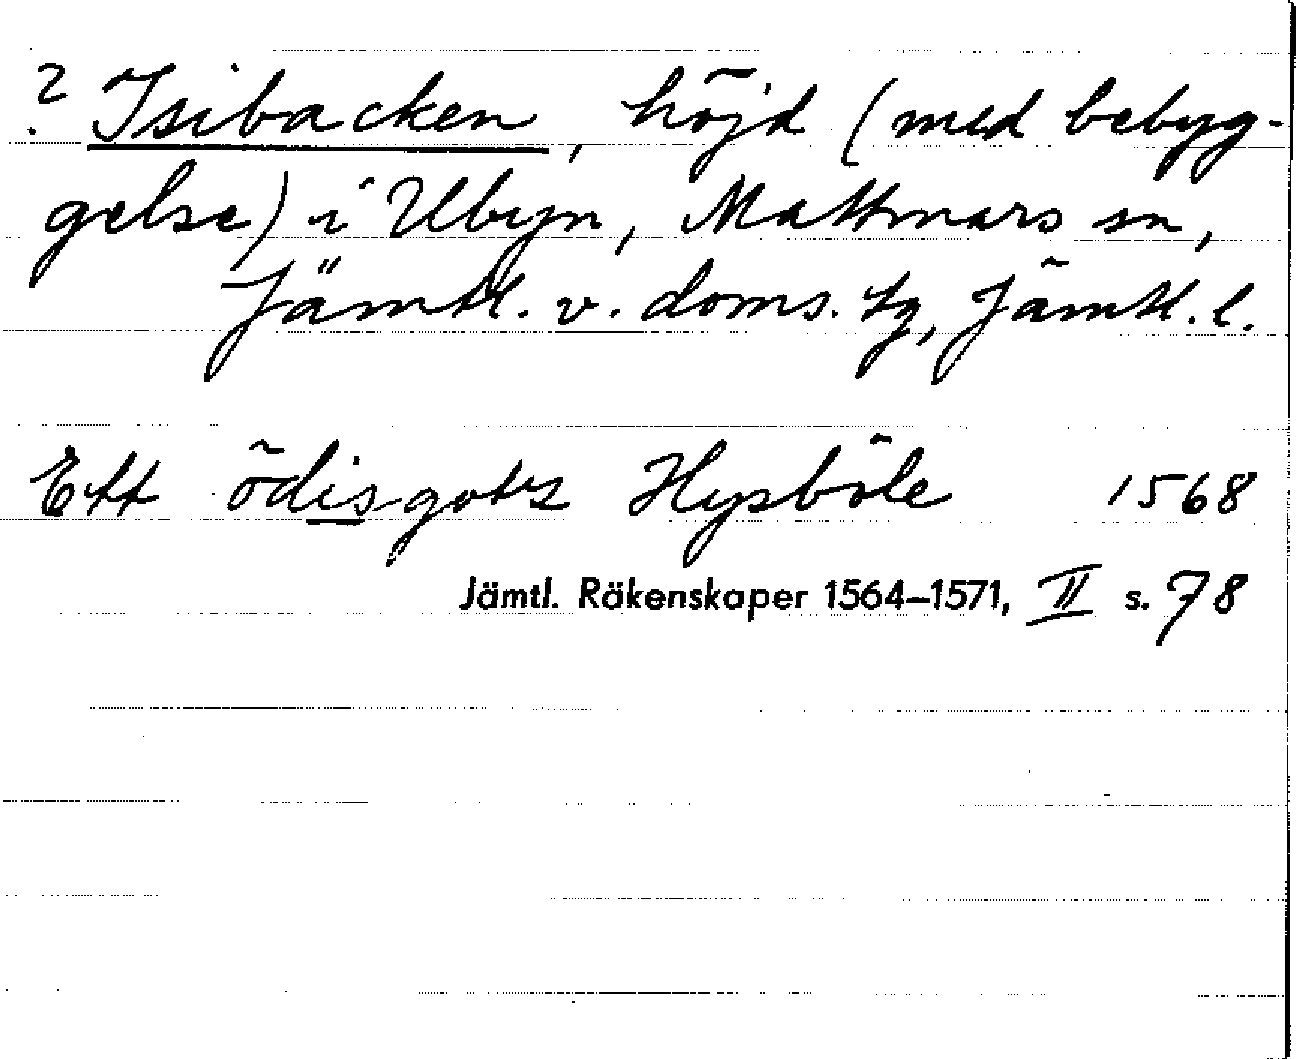 ? Isibacken, höjd (med bebyg-
gelse) i Ubyn, Mattmars sn,
Jämtl. v. doms. tg, Jämtl. l.
Ett ödisgots Hysböle 1568
Jämtl. Räkenskaper 1564–1571, II s. 78